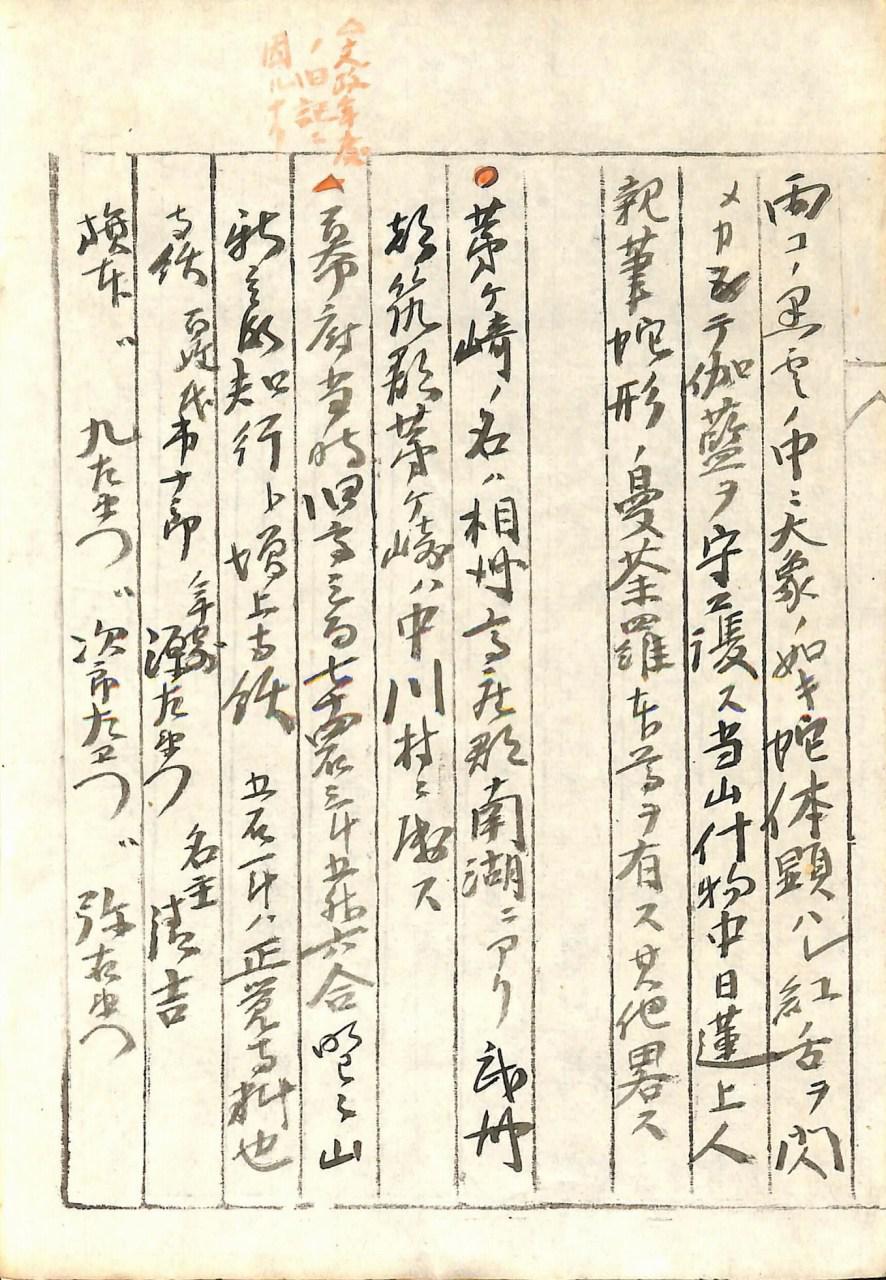 雨コノ黒雲ノ中ニ大象ノ如キ蛇体顕ハレ紅舌ヲ閃
メカシテ伽藍ヲ守護ス当山什物中日蓮上人
親筆蛇形ノ曼荼羅本尊ヲ有ス其他畧ス
茅ヶ崎ノ名ハ相州高座郡南湖ニアリ武州
都筑郡茅ヶ崎ハ中川村ニ属ス
(文政年度
ノ旧記ニ
因ル
幕府当時旧高三百七十四石三斗五升六合 山
新 知行ト増上寺領 五石一斗ハ正覚寺料也
寺領 市十郎 年寄 源左衛門 名主 清吉
〃 九左衛門 〃 次郎左衛門 〃 弥右衛門